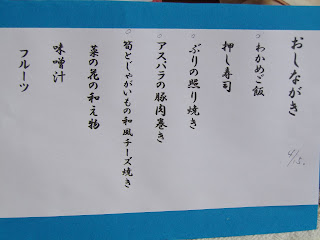 おしながき
わかめご飯
押し寿司
ぶりの照り焼き
アスパラの豚肉巻き
筍としゃがいもの和風チーズ焼き
菜の花の和え物
味噌汁
フルーツ
4/5.